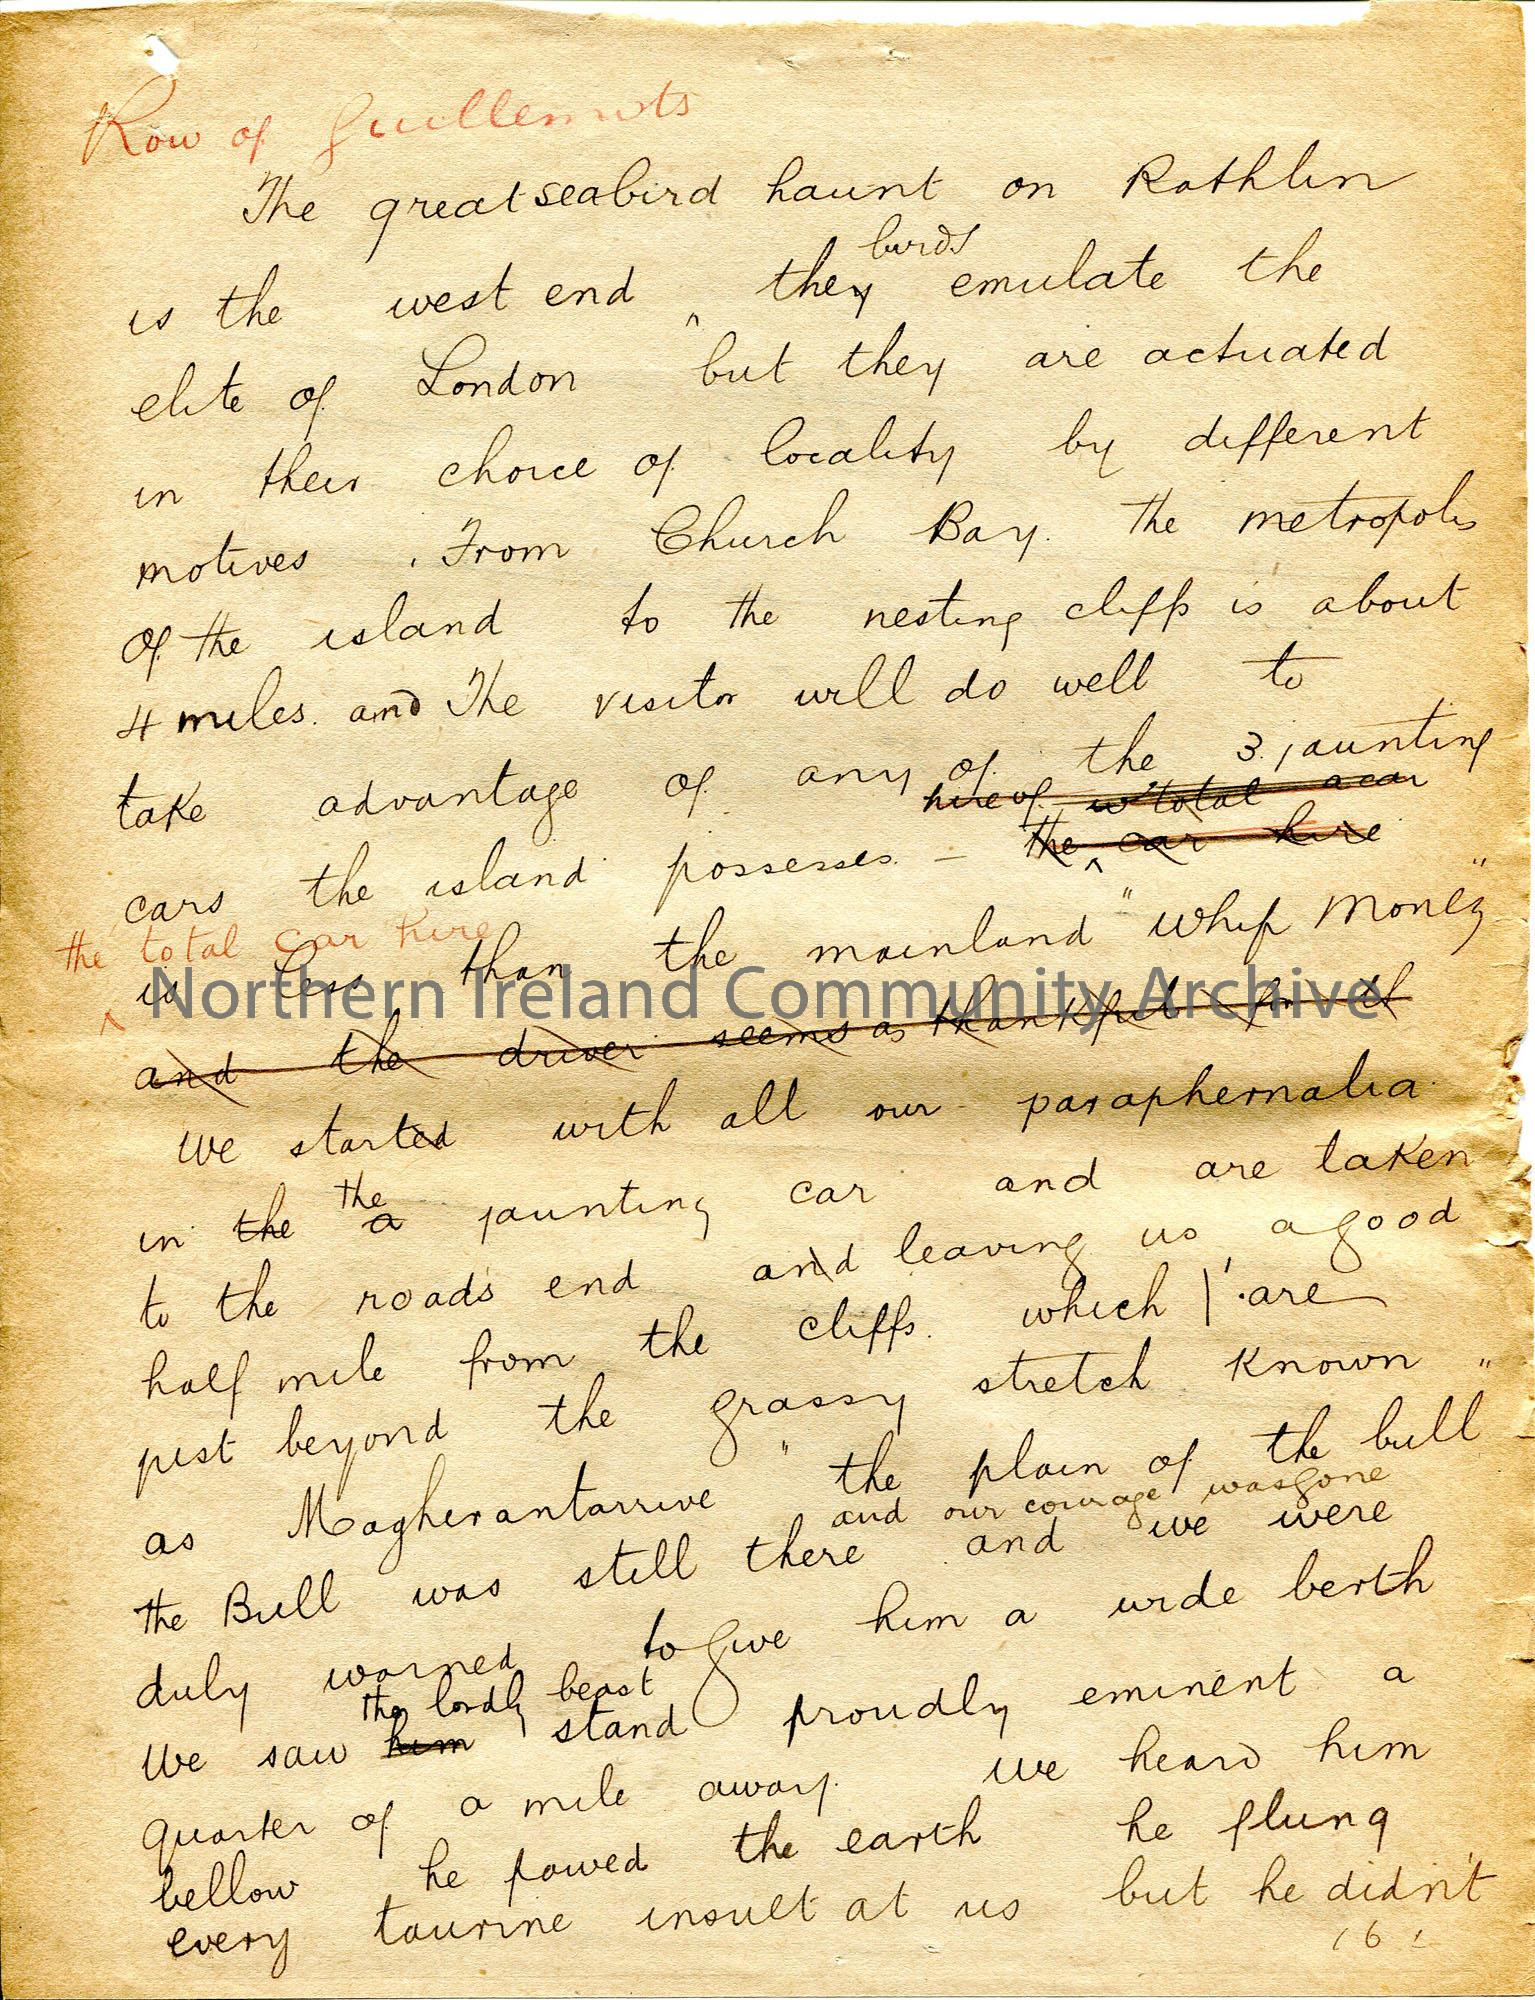 Row of Guillemots
The great seabird haunt on Rathlin
birds
is the west end they emulate the
elite of London but they are actuated
in their choice of locality by different
motives . From Church Bay. the metropolis
of the island to the nesting cliffs is about
4 miles. and The visitor will do well to
take advantage of any of the 3 jaunting
hire of total a car
cars the island possesses. – the car hire
the total car hire
is less than the mainland "whip money"
Northern Ireland Community Archive
and the driver seems as thankful for it
We started with all our paraphernalia.
the
in the a jaunting car and are taken
to the roads end and leaving us a good
half mile from the cliffs. which are
just beyond the grassy stretch known
as Magherantarrive "the plain of the bull"
and our courage was gone
the Bull was still there and we were
duly warned to give him a wide berth
the lordly beast
We saw him stand proudly eminent a
quarter of a mile away. we heard him
bellow he pawed the earth he flung
every taurine insult at us but he didn't
16